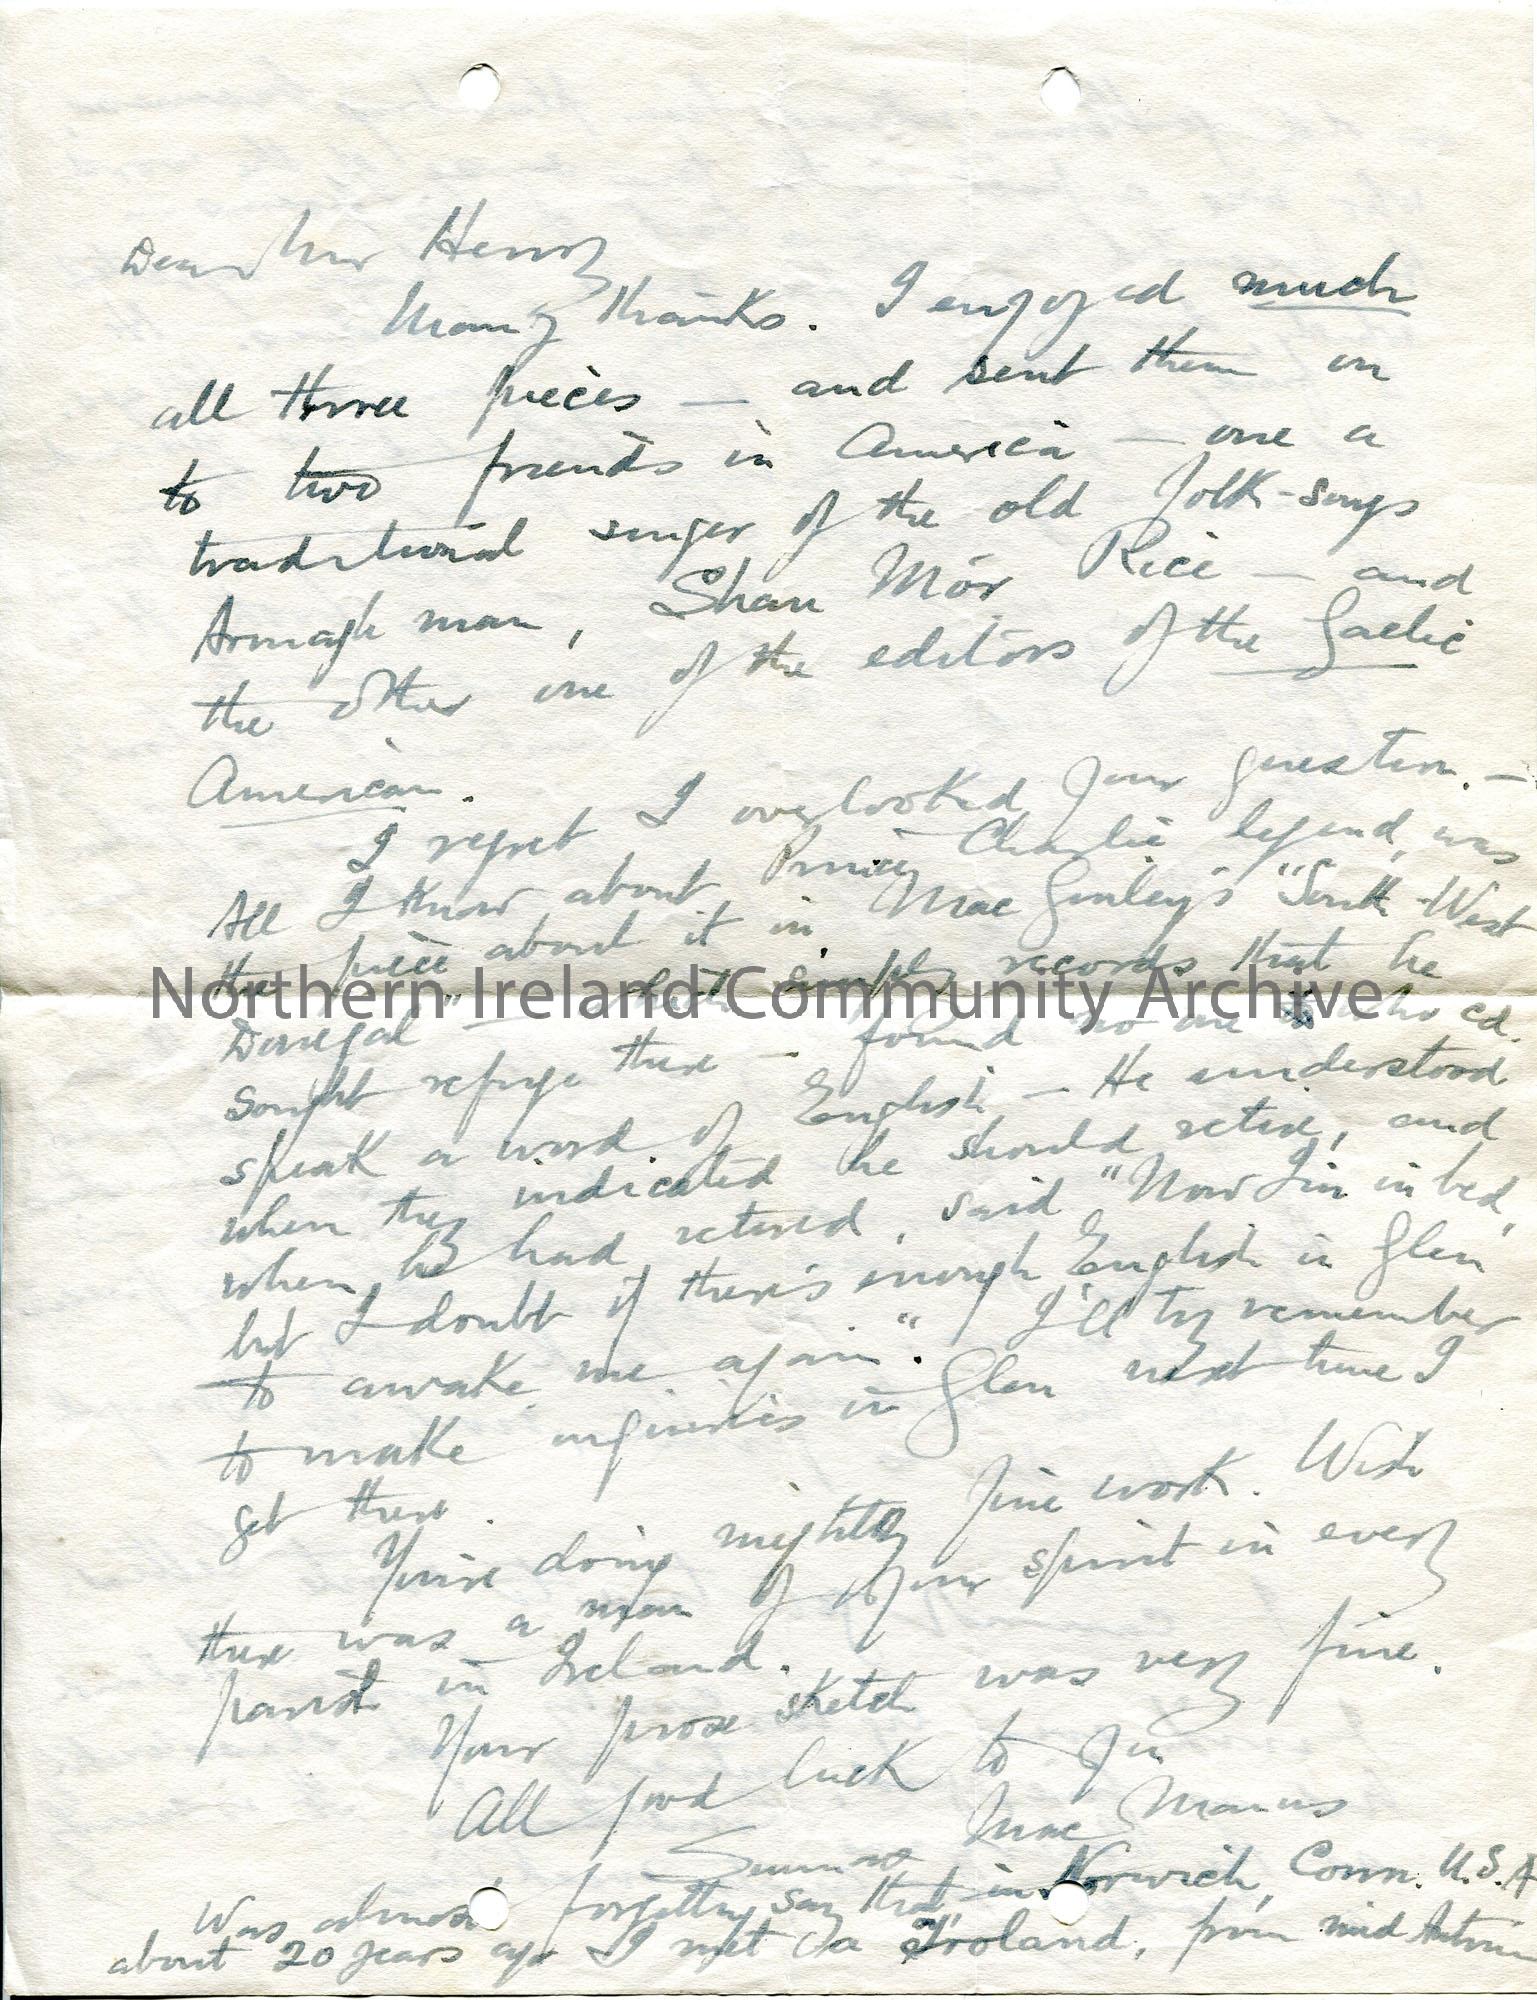 Dear Mr Henry
Many thanks. I enjoyed much
all three pieces — and sent them on
to two friends in America — one a
traditional singer of the old folk-songs
Armagh man, Shan Mór Rice — and
the other one of the editors of the Gaelic
American.
I regret I overlooked your question. —
All I know about Prince Charlie legend, was
the piece about it in Mac Ginley's "South-West
Donegal" — that simply records that he
sought refuge there — found no one who cd.
speak a word of English — He understood
when they indicated he should retire, and
when he had retired, said "Now I'm in bed,
but I doubt if there's enough English in Glen
to awake me again." I'll try remember
to make inquiries in Glen next time I
get there.
You're doing mighty fine work. Wish
there was a man of your spirit in every
parish in Ireland.
Your prose sketch was very fine.
All good luck to you
Seumas MacManus
Was almost forgetting say that in Norwich, Conn. U.S.A
about 20 years ago I met a Troland, from mid Antrim
Northern Ireland Community Archive